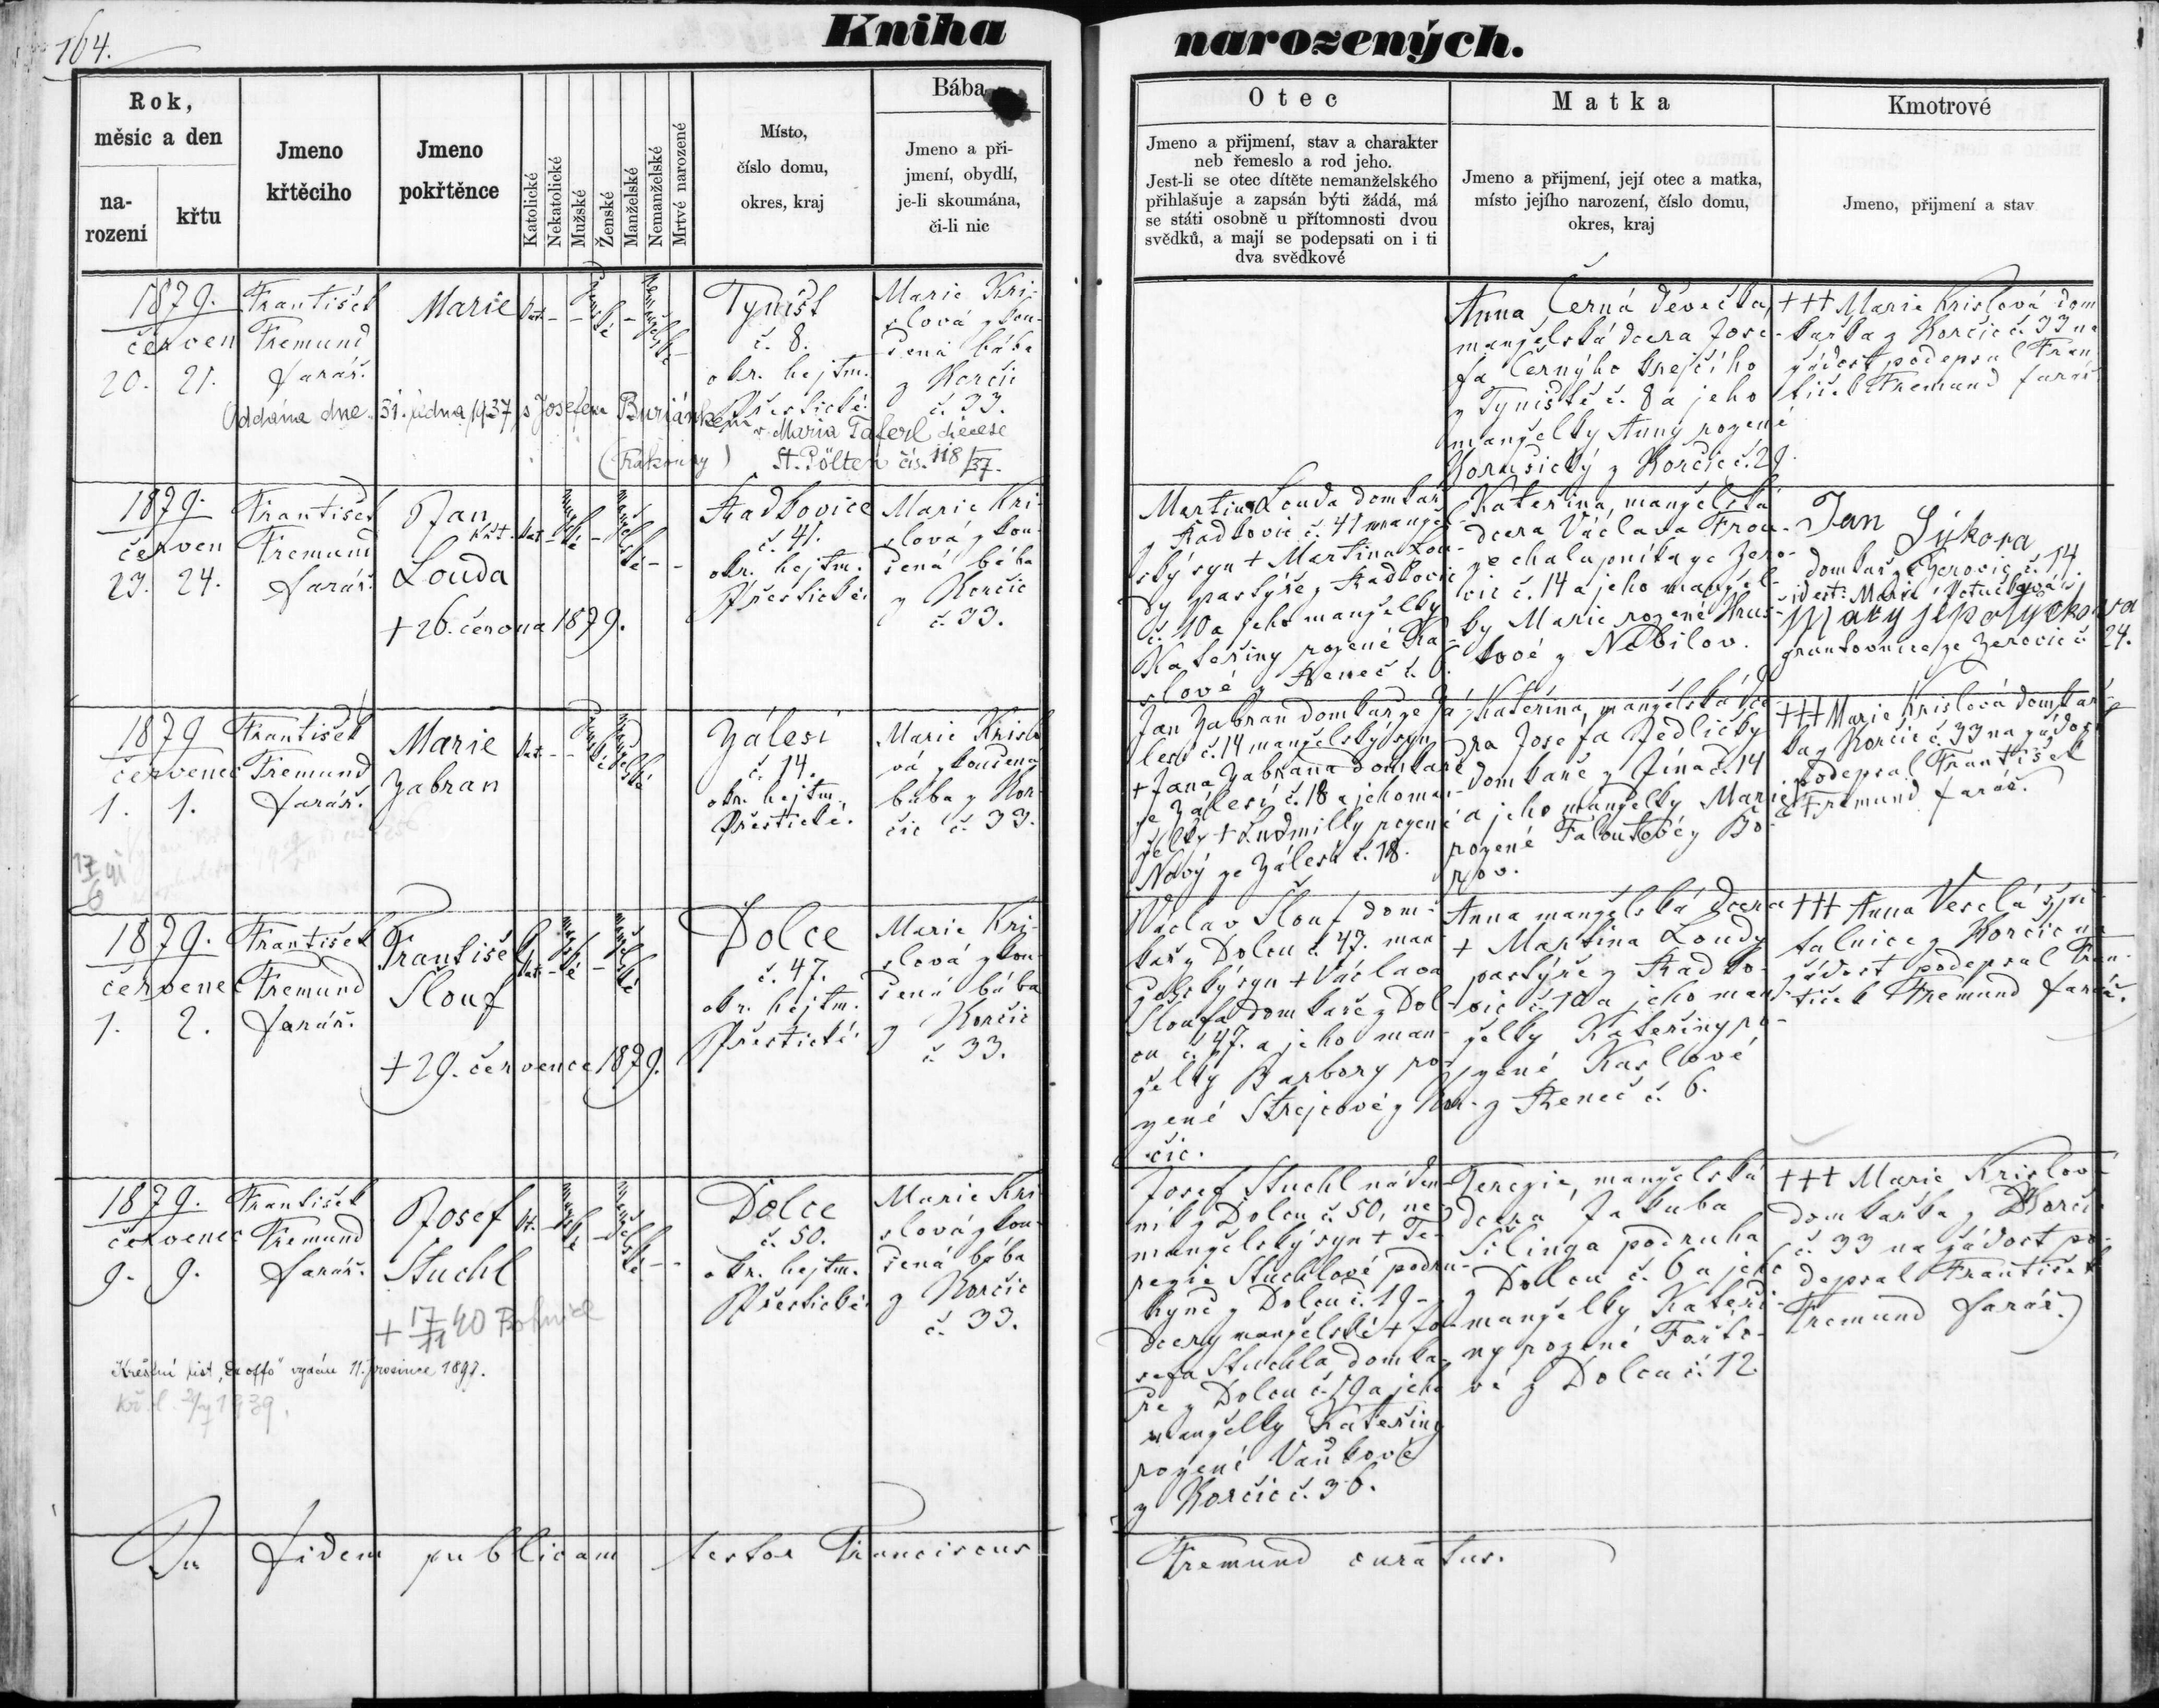 164.
Kniha narozených.
Rok,
měsíc a den
na-
rození
křtu
Jmeno
křtěcího
Jmeno
pokřtěnce
Katolické
Nekatolické
Mužské
Ženské
Manželské
Nemanželské
Mrtvé narozené
Místo,
číslo domu,
okres, kraj
Bába
Jmeno a pří-
jmení, obydlí,
je-li skoumána,
či-li nic
Otec
Jmeno a přijmení, stav a charakter
neb řemeslo a rod jeho.
Jest-li se otec dítěte nemanželského
přihlašuje a zapsán býti žádá, má
se státi osobně u přítomnosti dvou
svědků, a mají se podepsati on i ti
dva svědkové
Matka
Jmeno a přijmení, její otec a matka,
místo jejího narození, číslo domu,
okres, kraj
Kmotrové
Jmeno, přijmení a stav
1879.
červen
20. 21.
František
Fremund
farář.
Marie
kat. - - ženské - nemanželské -
Týnišť
č. 8.
okr. hejtm.
Přestické
Marie Kri-
slová zkou-
šená bába
z Horčic
č. 33.
Oddána dne 31. ledna 1937 s Josefem Buriánkem
v Maria Taferl diecese
(Rakousy) St. Pölten čís. 118/37.
Anna Černá děvečka,
manželská dcera Jose-
fa Černýho krejčího
z Týniště č. 8 a jeho
manželky Anny rozené
z Horčic č. 29.
+++ Marie Krislová dom
karka z Horčic č. 33 na
žádost podepsal Fran
tišek Fremund farář
1879.
červen
23. 24.
František
Fremund
farář.
Jan
Křt.
Louda
+ 26. června 1879.
kat - mužské - manželské - -
Radkovice
č. 41.
okr. hejtm.
Přestické
Marie Kri-
slová zkou-
šená bába
z Horčic
č. 33.
Martin Louda domkář
z Radkovic č. 41 manžel-
ský syn + Martina Lou-
dy pastýře z Radkovic
č. 10 a jeho manželky
Kateřiny rozené Ka-
slové z Řeneč č. 6.
Kateřina, manželská
dcera Václava Frou-
ze chalupníka ze Žero-
vic č. 14 a jeho manžel-
ky Marie rozené Hrus-
kové z Nebílov.
Jan Sýkora
domkář z Žerovic č. 14.
id est: Marie
grantovnice ze Žerovic č. 24.
1879
červenec
1. 1.
František
Fremund
farář.
Marie
Zabran
kat - - ženské manželské
Zálesí
č. 14.
okr. hejtm.
Přestické.
Marie Krislo
vá zkoušená
bába z Hor-
čic č. 33.
Jan Zabran domkář ze Zá-
lesí č. 14 manželský syn
+ Jana Zabrana domkáře
ze Zálesí č. 18 a jeho man-
želky + Ludmilly rozené
Nový ze Zálesí č. 18.
Kateřina, manželská dce
ra Josefa Jedličky
domkáře z Jína č. 14
a jeho manželky Marie
rozené Faloutové z Bo-
rov.
+++ Marie Krislová domkář-
ka z Horčic č. 33 na žádost
podepsal František
Fremund farář.
17/6 91
1879.
červenec
1. 2.
František
Fremund
farář.
František
Šlouf
+ 29. července 1879.
kat - mužské - manželské
Dolce
č. 47.
okr. hejtm.
Přestické
Marie Kri-
slová zkou-
šená bába
z Horčic
č. 33.
Václav Šlouf dom-
kář z Dolcu č. 47. man-
želský syn + Václava
Šloufa domkáře z Dol-
cu č. 47. a jeho man-
želky Barbory ro-
zené Strejcové z Hor-
čic.
Anna manželská dcera
+ Martina Loudy
pastýře z Radko-
vic č. 10 a jeho man-
želky Kateřiny ro-
zené Kaslové
z Řeneč č. 6.
+++ Anna Veselá špi-
talnice z Horčic na
žádost podepsal Fran-
tišek Fremund farář.
1879.
červenec
9. 9.
František
Fremund
farář.
Josef
Stuchl
+ 17/11 40
kt. - mužské - manželské - -
Dolce
č. 50.
okr. hejtm.
Přestické
Marie Kri
slová zkou-
šená bába
z Horčic
č. 33.
Křestní list „ex offo" vydán 11. prosince 1897.
Josef Stuchl náden-
ník z Dolcu č. 50, ne-
manželský syn + Te-
rezie Stuchlové podru-
hyně z Dolcu č. 19 -
dcery manželské + Jo-
sefa Stuchla domka-
ře z Dolcu č. 19 a jeho
manželky Kateřiny
rozené Vaňkové
z Horčic č. 36.
Terezie, manželská
dcera Jakuba
Šilinga podruha
z Dolcu č. 6 a jeho
manželky Kateři-
ny rozené Fořto-
vé z Dolcu č. 12
+++ Marie Krislová
domkařka z Horčic
č. 33 na žádost po-
depsal František
Fremund farář.
In fidem publicam testor Franciscus
Fremund curatus.